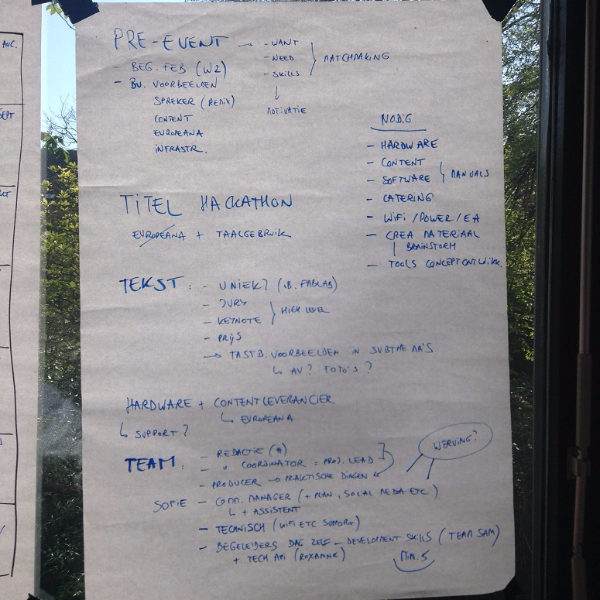 PRE-EVENT → - WANT
- NEED
- SKILLS
MATCHMAKING
↓
MOTIVATIE
- BEG. FEB (W2)
- BV. VOORBEELDEN
SPREKER (REMIX)
CONTENT
EUROPEANA
INFRASTR.
NODIG
- HARDWARE
- CONTENT
- SOFTWARE
MANUALS
- CATERING
- WIFI / POWER / EA
- CREA MATERIAAL
BRAINSTORM
- TOOLS CONCEPTONTWIKK.
TITEL HACKATHON
EUROPEANA + TAALGEBRUIK
TEKST: - UNIEK? (I.B. FABLAB)
- JURY
- KEYNOTE
HIGH LEVEL
- PRIJS
→ TASTB. VOORBEELDEN IN SUBTHEMA'S
↳ AV? FOTO'S?
HARDWARE + CONTENTLEVERANCIER
↳ EUROPEANA
↳ SUPPORT?
TEAM: - REDACTIE
- " COORDINATOR = PROJ. LEAD
- PRODUCER → PRAKTISCHE DINGEN
WERVING?
SOFIE - COMM. MANAGER (+ PLAN, SOCIAL MEDIA ETC)
↳ + ASSISTENT
- TECHNISCH (WIFI ETC SUPPORT)
- BEGELEIDERS DAG ZELF - DEVELOPMENT SKILLS (TEAM SAM)
+ TECH API (ROXANNE)
MIN. 5